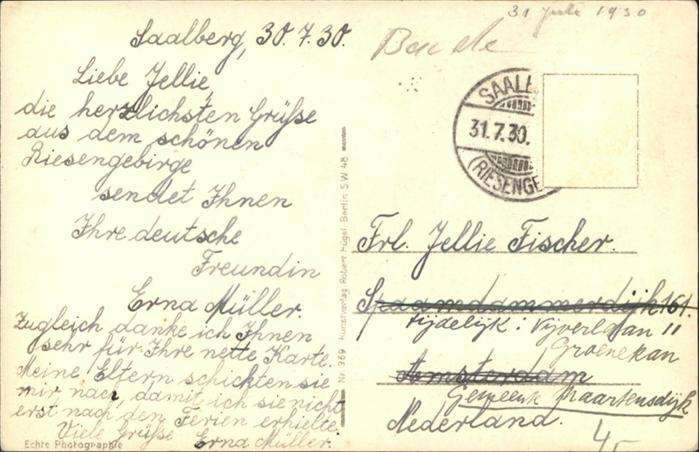 31 Juli 1930
Saalberg, 30.7.30.
Liebe Jellie,
die herzlichsten Grüsse
aus dem schönen
Riesengebirge
sendet Ihnen
Ihre deutsche
Freundin
Erna Müller.
Zugleich danke ich Ihnen
sehr für Ihre nette Karte.
Meine Eltern schickten sie
mir nach damit ich sie nicht
erst nach den Ferien erhielte.
Viele Grüße Erna Müller.
Echte Photographie
Nr. 369 Kunstverlag Robert Hügel Berlin SW 48
SAALB
31.7.30.
(RIESENGE
Frl. Jellie Fischer.
Spaarndammerdijk 161.
tijdelijk: Vijverlaan 11
Groenekan
Amsterdam
Gemeente Maartensdijk
Nederland.